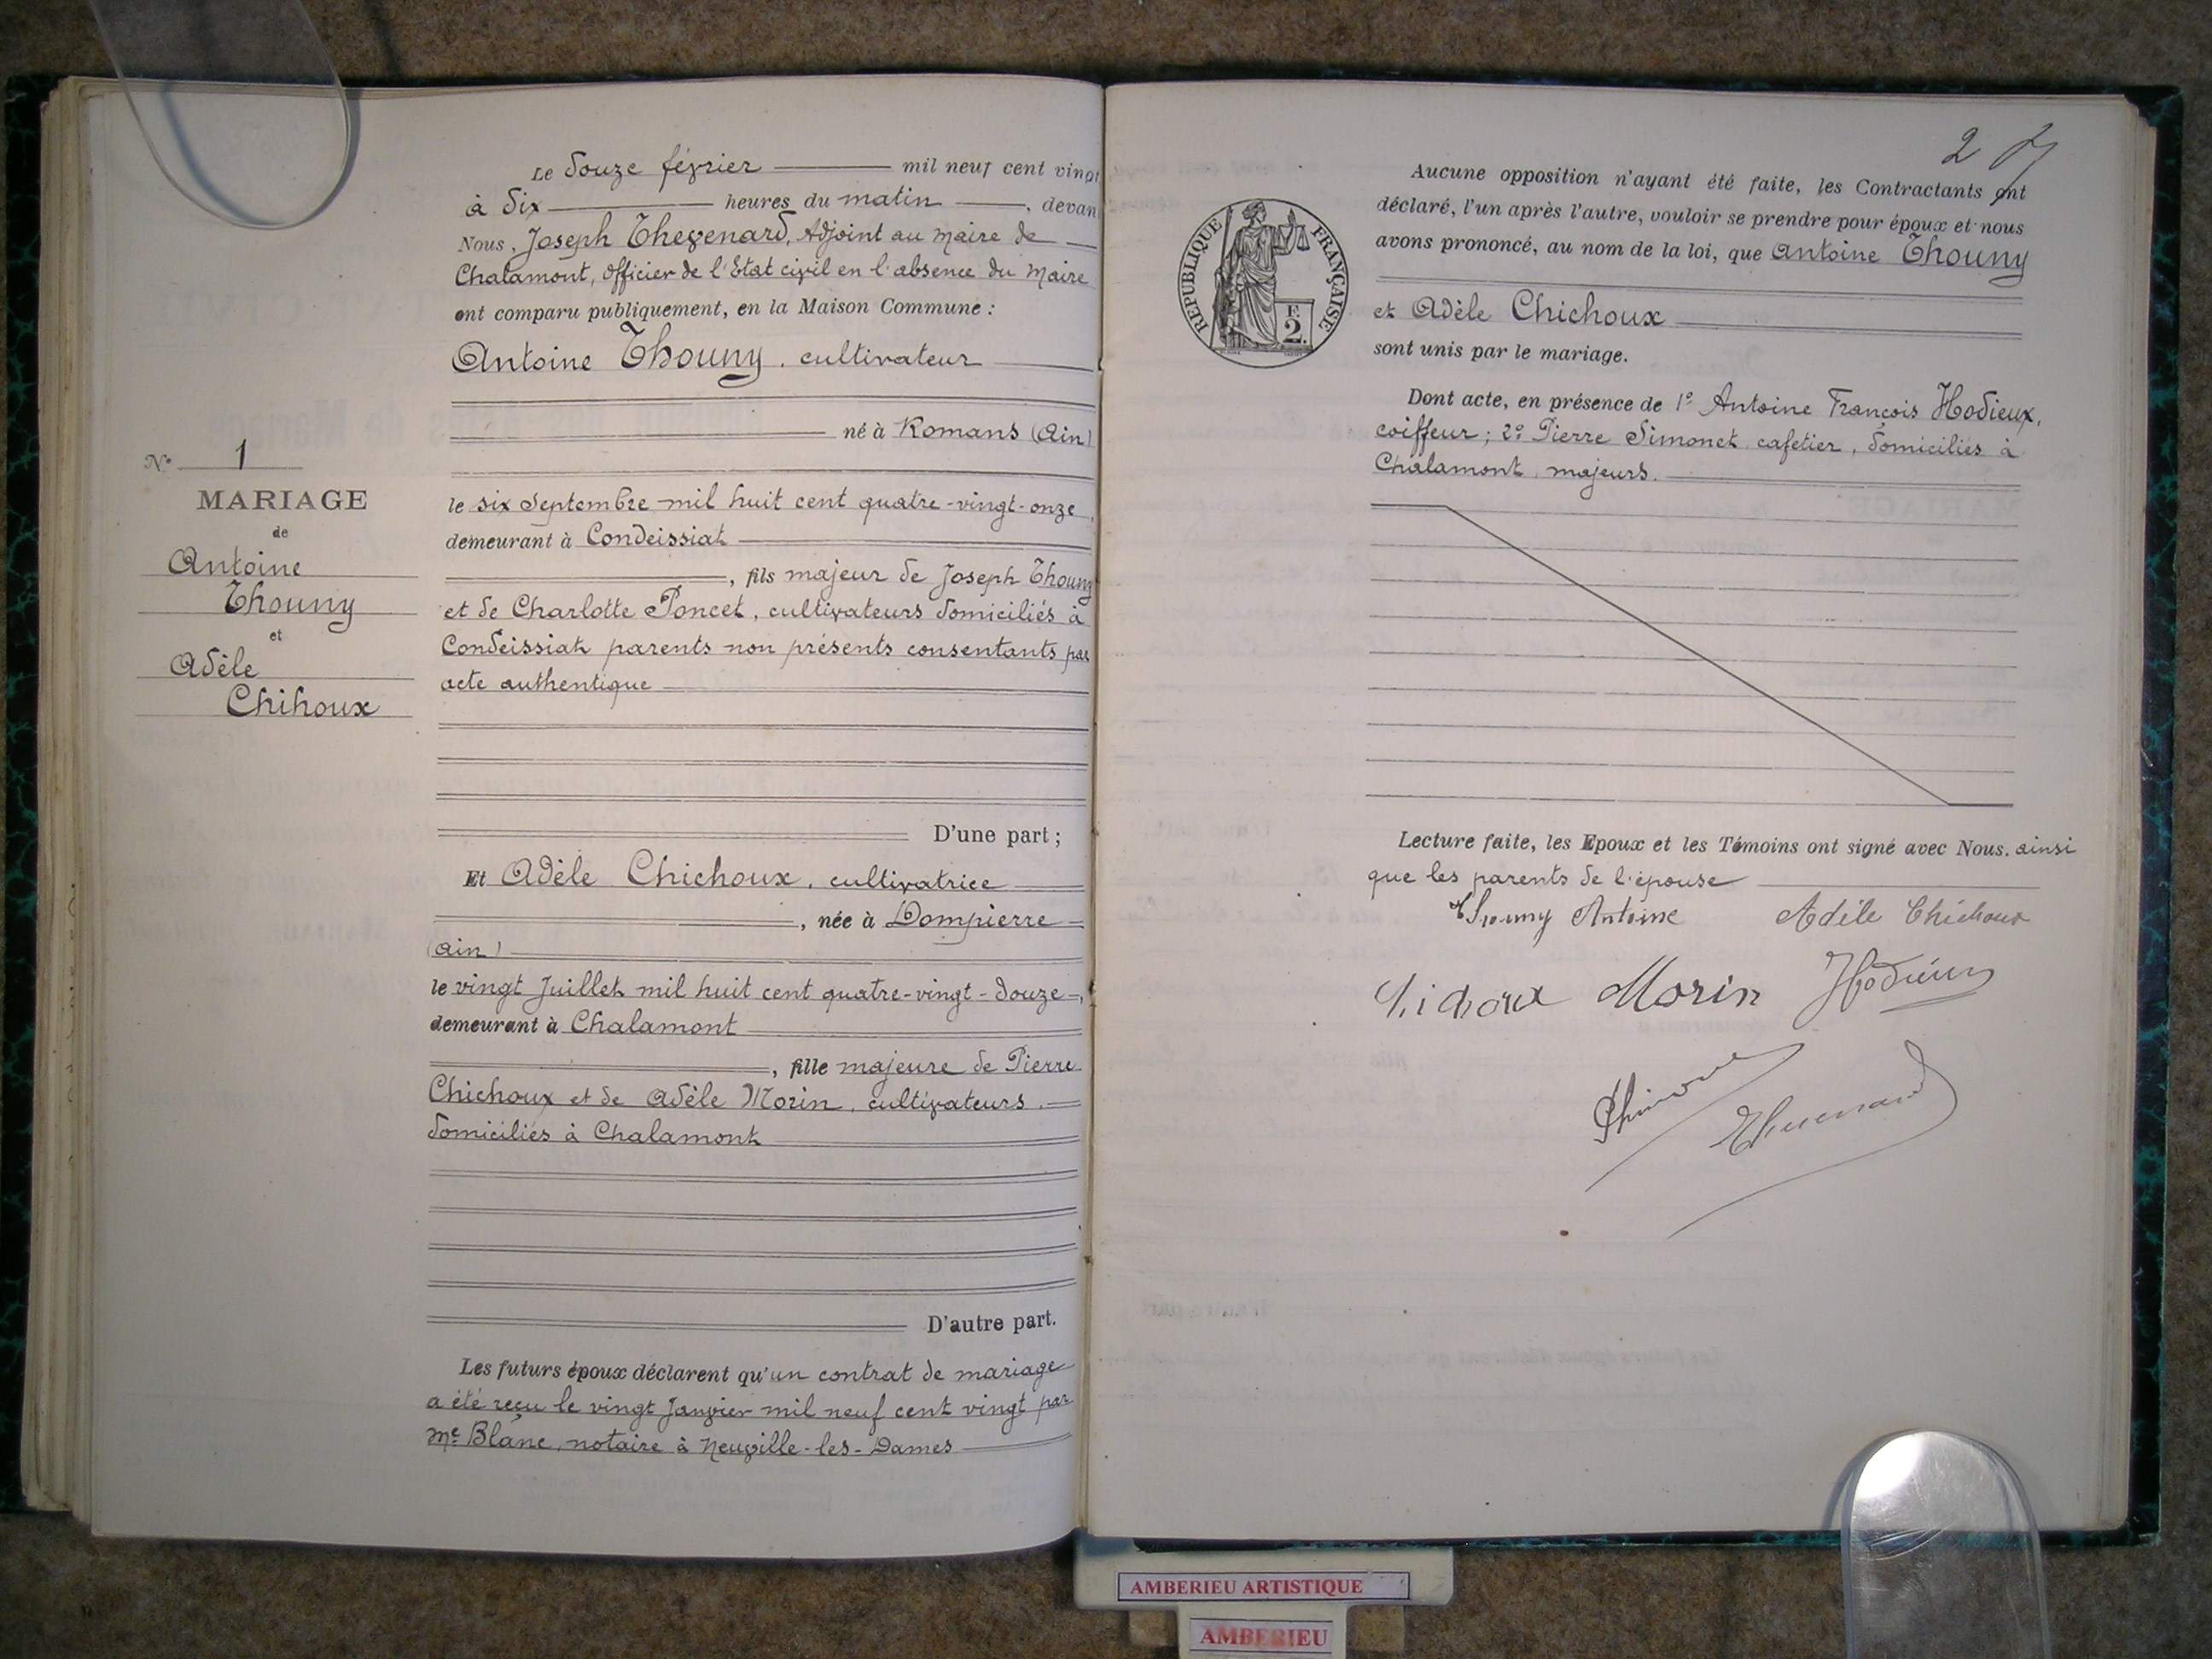 Le douze février mil neuf cent vingt
à dix heures du matin, devan
Nous, Joseph Thevenard, Adjoint au Maire de
Chalamont, officier de l'Etat civil en l'absence du Maire
ont comparu publiquement, en la Maison Commune :
Antoine Thouny, cultivateur
né à Romans (Ain)
le six Septembre mil huit cent quatre-vingt-onze,
demeurant à Condeissiat
, fils majeur de Joseph Thouny
et de Charlotte Poncet, cultivateurs domiciliés à
Condeissiat parents non présents consentants par
acte authentique
D'une part ;
N° 1
MARIAGE
de
Antoine
Thouny
et
Adèle
Chihoux
Et Adèle Chichoux, cultivatrice
, née à Dompierre
(Ain)
le vingt Juillet mil huit cent quatre-vingt-douze,
demeurant à Chalamont
, fille majeure de Pierre
Chichoux et de Adèle Morin, cultivateurs
domiciliés à Chalamont
D'autre part.
Les futurs époux déclarent qu'un contrat de mariage
a été reçu le vingt Janvier mil neuf cent vingt par
Me Blanc, notaire à Neuville-les-Dames
2
RÉPUBLIQUE FRANÇAISE
F.
2.
Aucune opposition n'ayant été faite, les Contractants ont
déclaré, l'un après l'autre, vouloir se prendre pour époux et nous
avons prononcé, au nom de la loi, que Antoine Thouny
et Adèle Chichoux
sont unis par le mariage.
Dont acte, en présence de 1° Antoine François Hodieux,
coiffeur ; 2° Pierre Simonet cafetier, domiciliés à
Chalamont, majeurs.
Lecture faite, les Epoux et les Témoins ont signé avec Nous. ainsi
que les parents de l'épouse
Thouny Antoine Adèle Chichoux
Morin Hodieux
Thevenard
AMBERIEU ARTISTIQUE
AMBERIEU